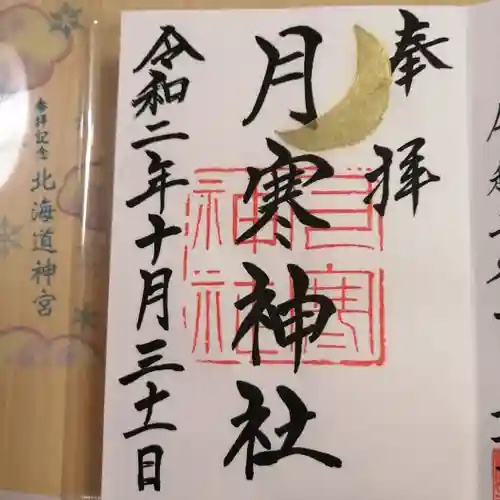 奉拝
月寒神社
令和二年十月三十一日
月寒
神社
参拝記念
北海道神宮